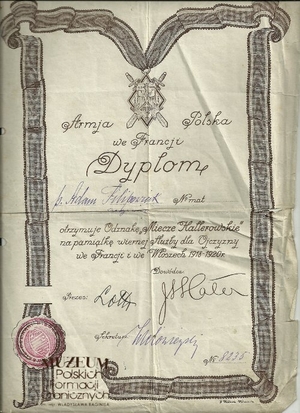 Armja Polska
we Francji
Dyplom
p. Adam Nr. mat.
otrzymuje Odznakę „Miecze Hallerowskie"
na pamiątkę wiernej Służby dla Ojczyzny
we Francji i we Włoszech 1918-1920r.
Dowódca:
Prezes:
Sekretarz:
Nr. 8235
MUZEUM
Polskich
Formacji
Granicznych